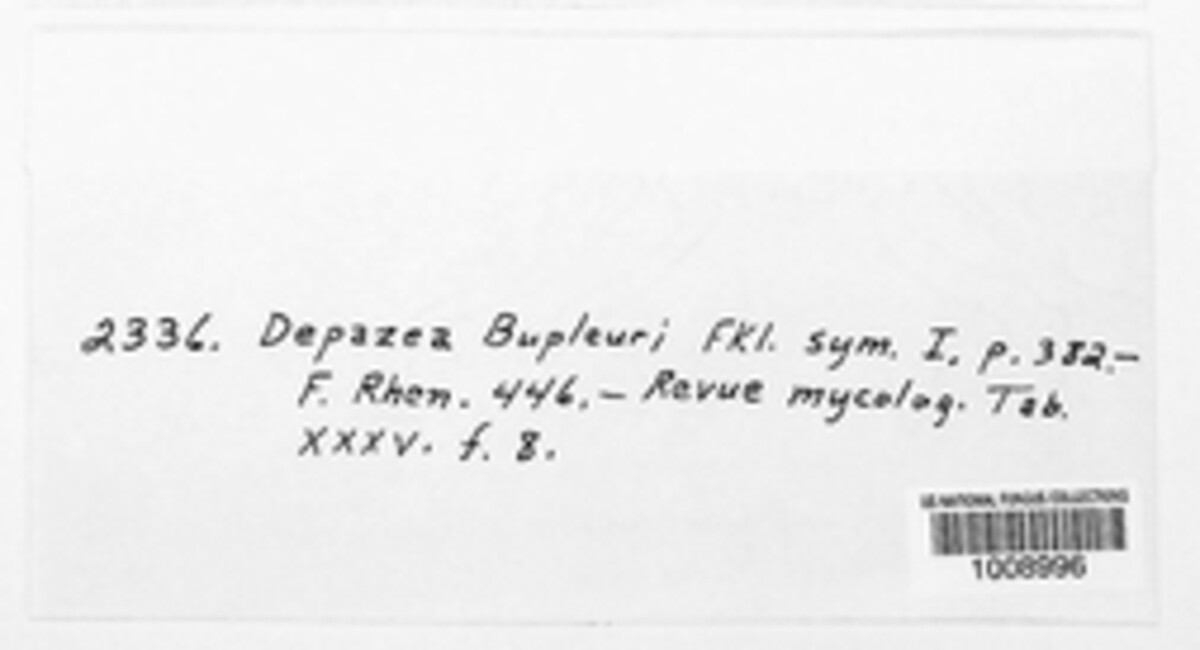 2336. Depazea Bupleuri Fkl. sym. I. p. 382.—
F. Rhen. 446.— Revue mycolog. Tab.
XXXV. f. 8.
US NATIONAL FUNGUS COLLECTIONS
1008996